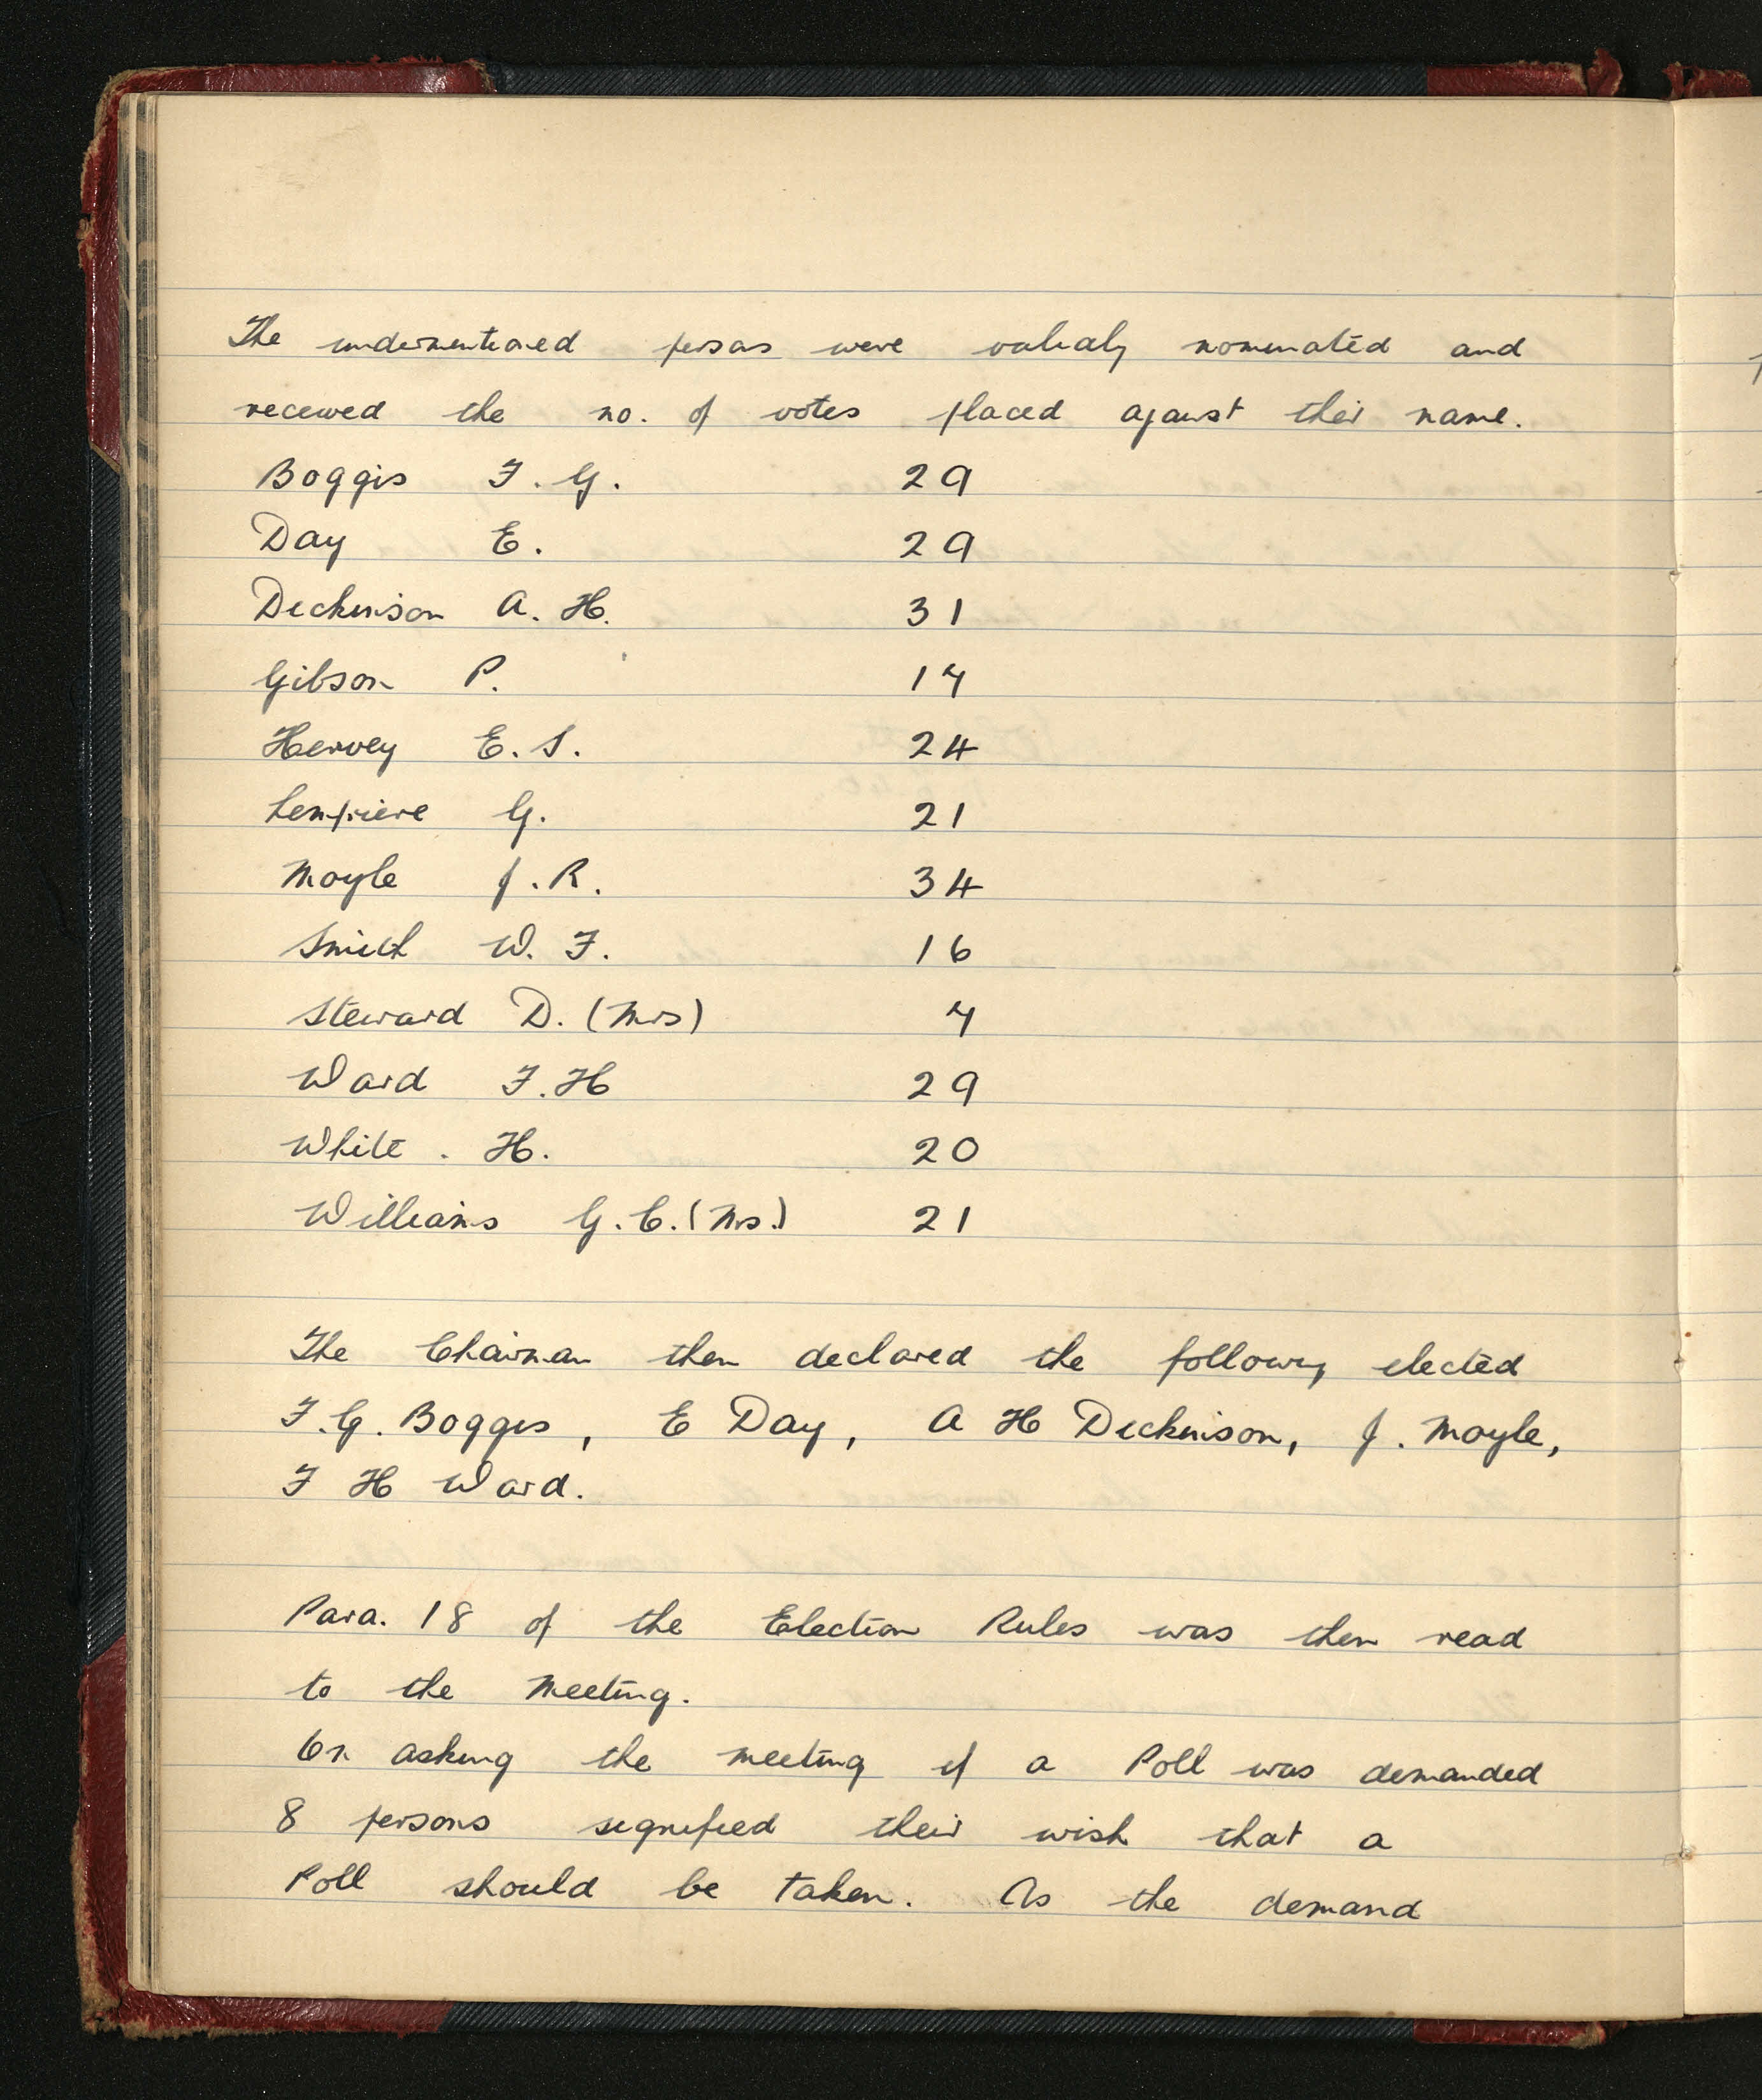 The undermentioned persons were validly nominated and
received the no. of votes placed against their name.
Boggis F. G. 29
Day E. 29
Dickinson A. H. 31
Gibson P. 17
Hervey E. S. 24
Lempriere G. 21
Moyle J. R. 34
Smith W. F. 16
Steward D. (Mrs) 7
Ward F. H 29
White . H. 20
Williams G. C. (Mrs.) 21
The Chairman then declared the following elected
F. G. Boggis, E Day, A H Dickinson, J. Moyle,
F H Ward.
Para. 18 of the Election Rules was then read
to the Meeting.
On asking the meeting if a Poll was demanded
8 persons signified their wish that a
Poll should be taken. As the demand